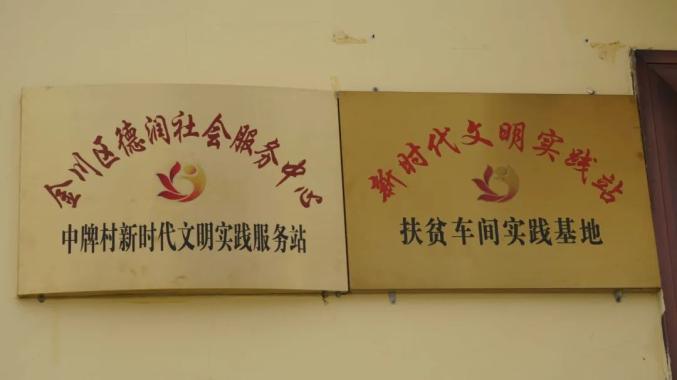 金川区德润社会服务中心
中牌村新时代文明实践服务站
新时代文明实践站
扶贫车间实践基地